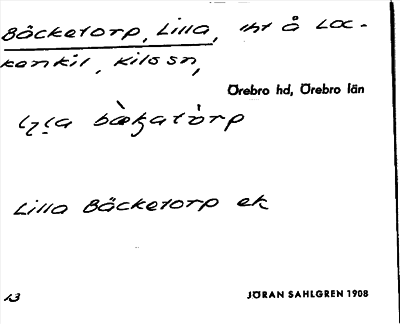 Bäcketorp, Lilla, tht å Loc-
kenkil, Kils sn,
Örebro hd, Örebro län
Lilla Bäcketorp ek
13
JÖRAN SAHLGREN 1908